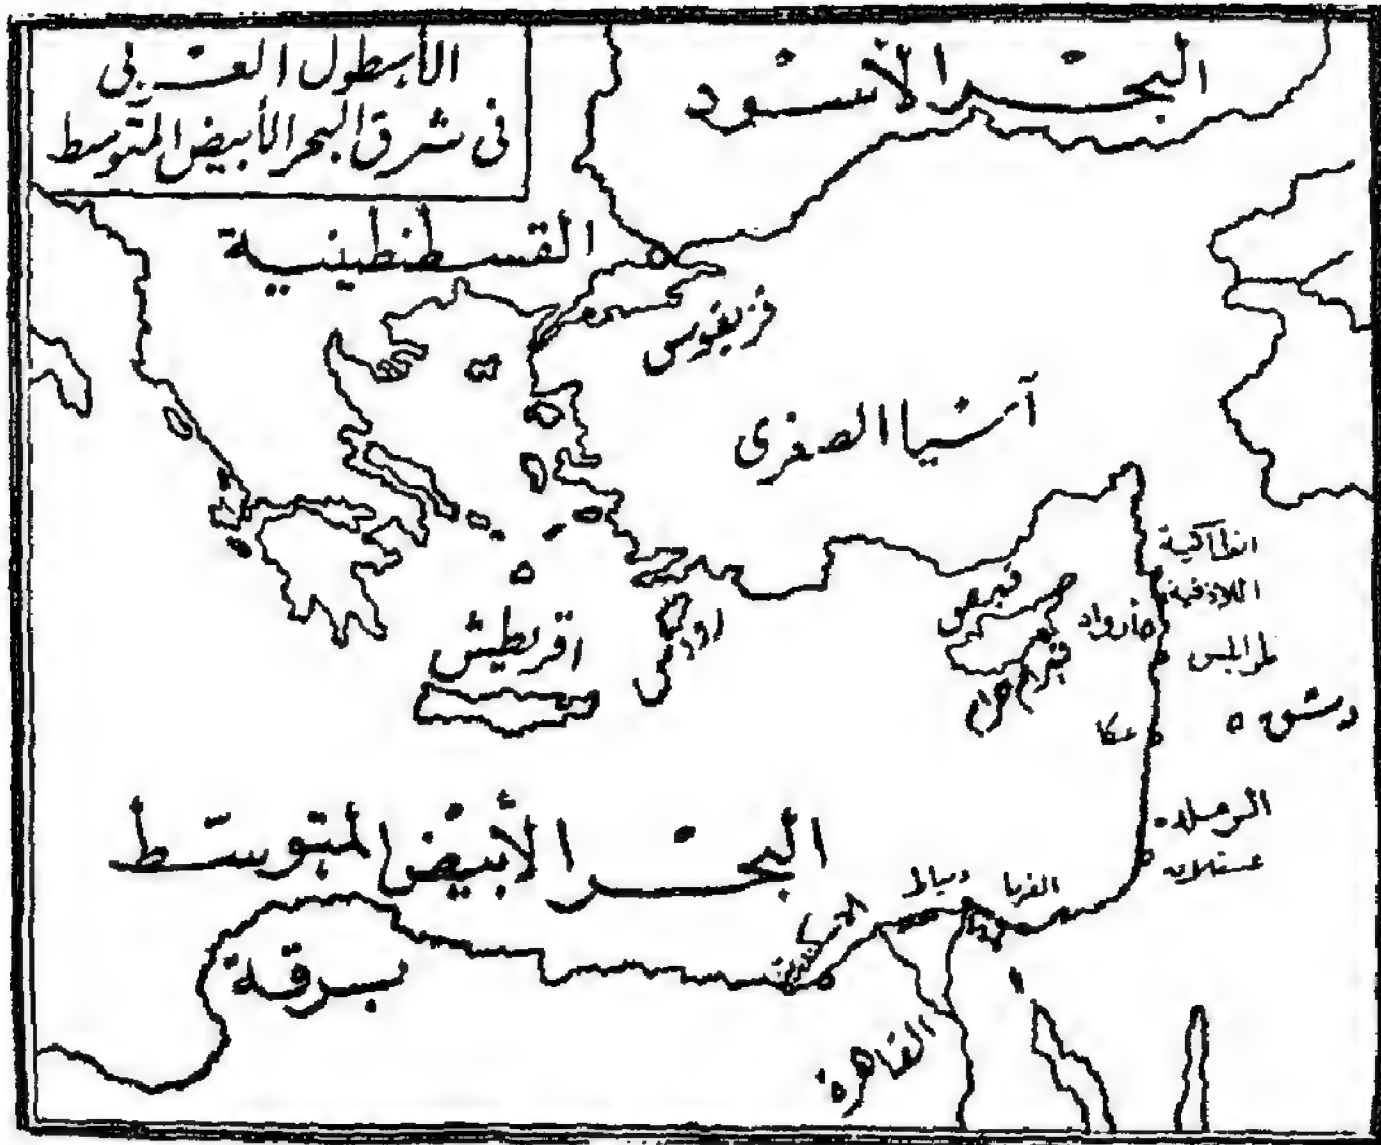 الأسطول العربى
فى شرق البحر الأبيض المتوسط
البحر الأسود
القسطنطينية
فزيقوس
آسيا الصغرى
انطاكية
اللاذقية
قبرص
أرواد
طرابلس
اقريطش
دمشق
عكا
الرملة
عسقلان
البحر الأبيض المتوسط
الفرما
دمياط
الاسكندرية
برقة
القاهرة